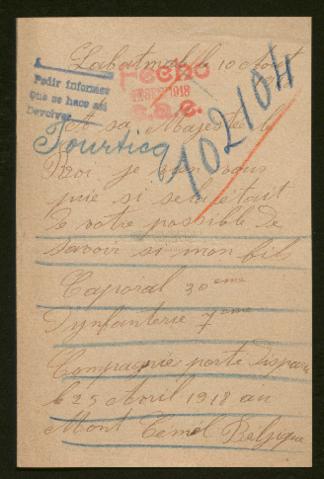 Labatmale le 10 Aout
Pedir informes
que se hace así
Devolver
Fecho
1918
102104
A sa Majesté le
Tourticq
Roi je vous
prie si cela était
de votre possible de
savoir si mon fils
Caporal 30eme
D'ynfanterie 7eme
Compagnie porté disparu
le 25 Avril 1918 au
Mont Cemel Belgique